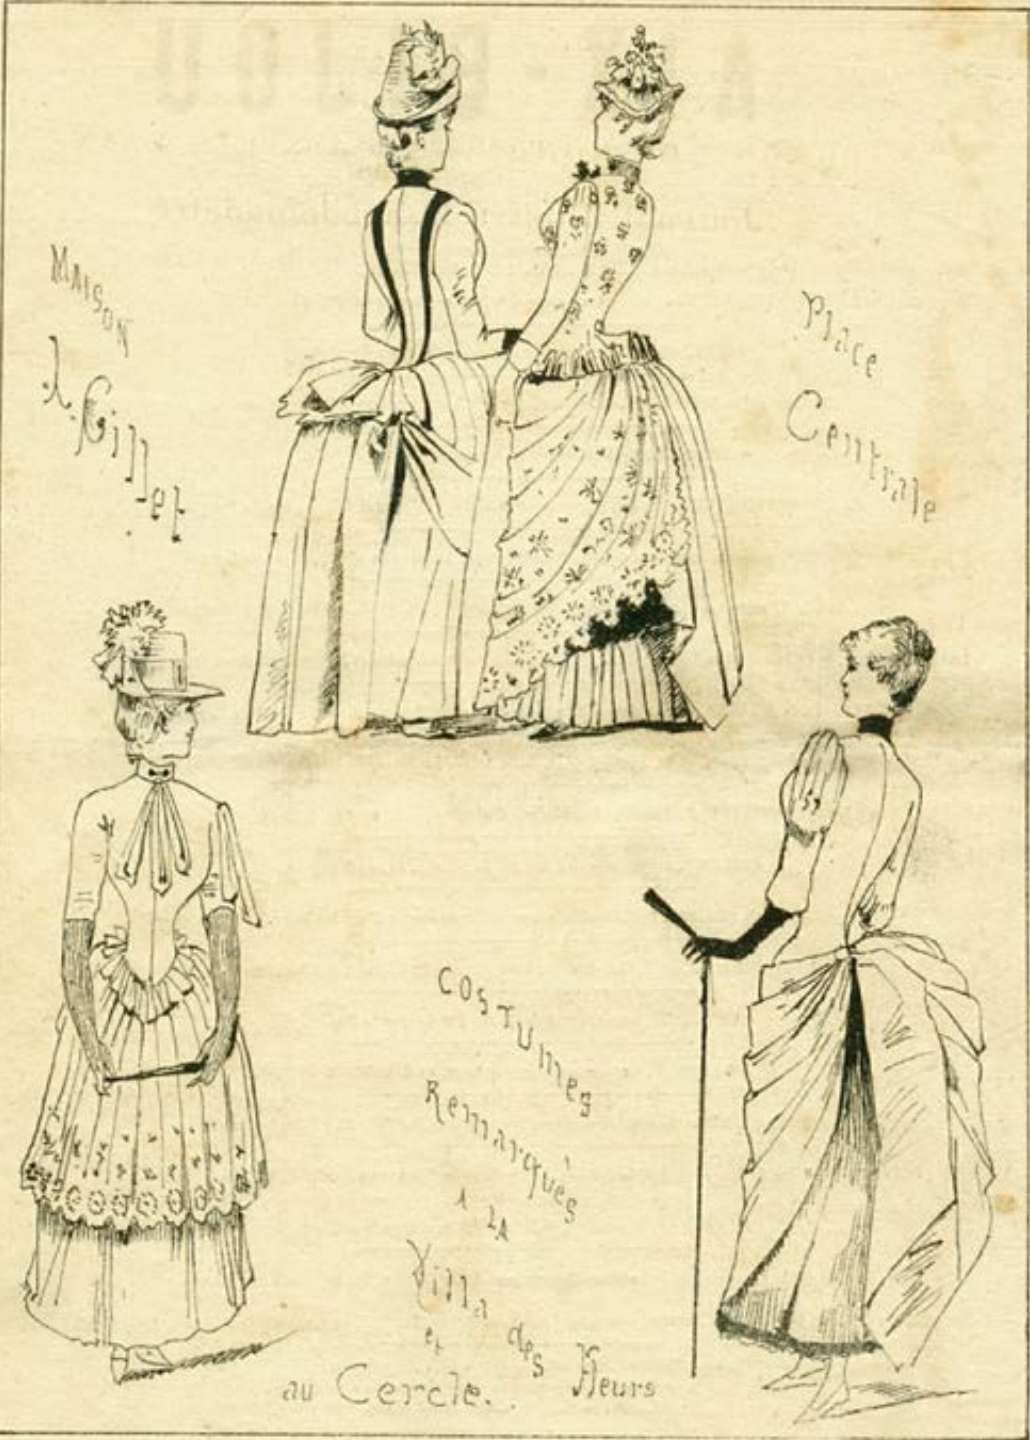 MAISON
A. Gillet
Place
Centrale
COSTUMES
Remarqués
A LA
Villa des Fleurs
et
au Cercle.